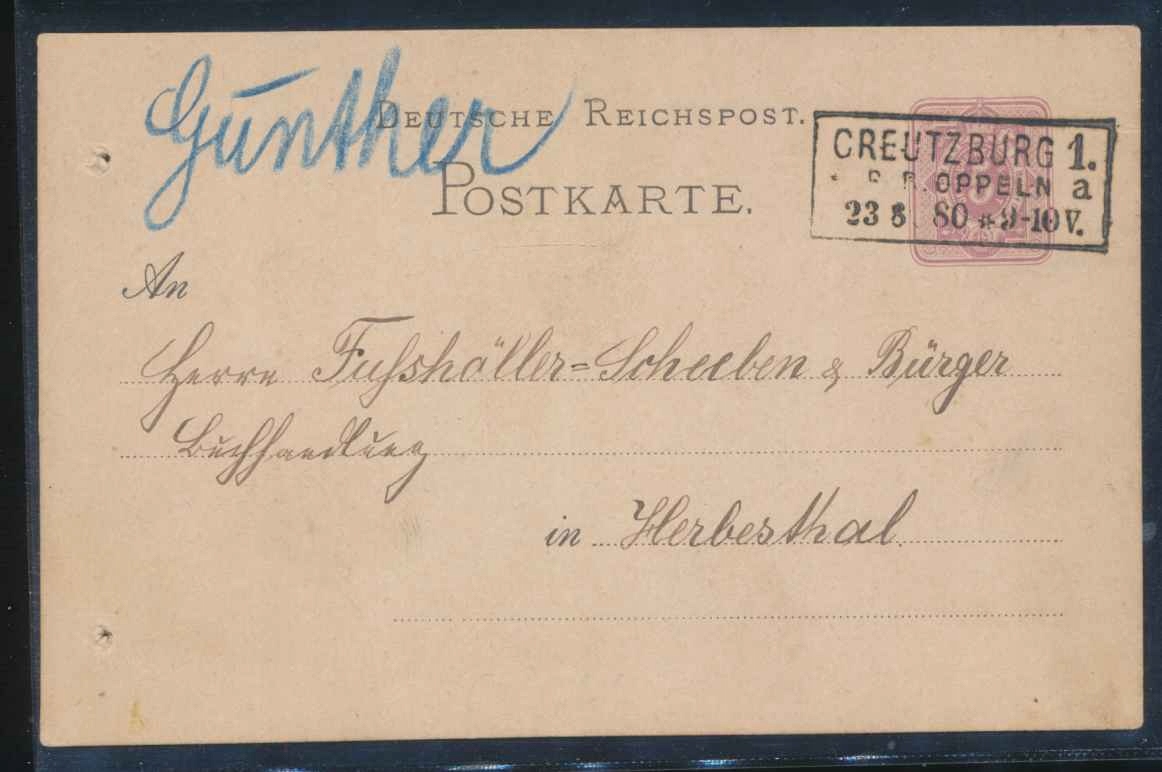 Günther
DEUTSCHE REICHSPOST.
POSTKARTE.
CREUTZBURG 1.
R. B. OPPELN a
23 8 80 * 9-10 V.
An
Herrn Fuſshöller-Scheeben & Bürger
Buchhandlung
in Herbesthal.